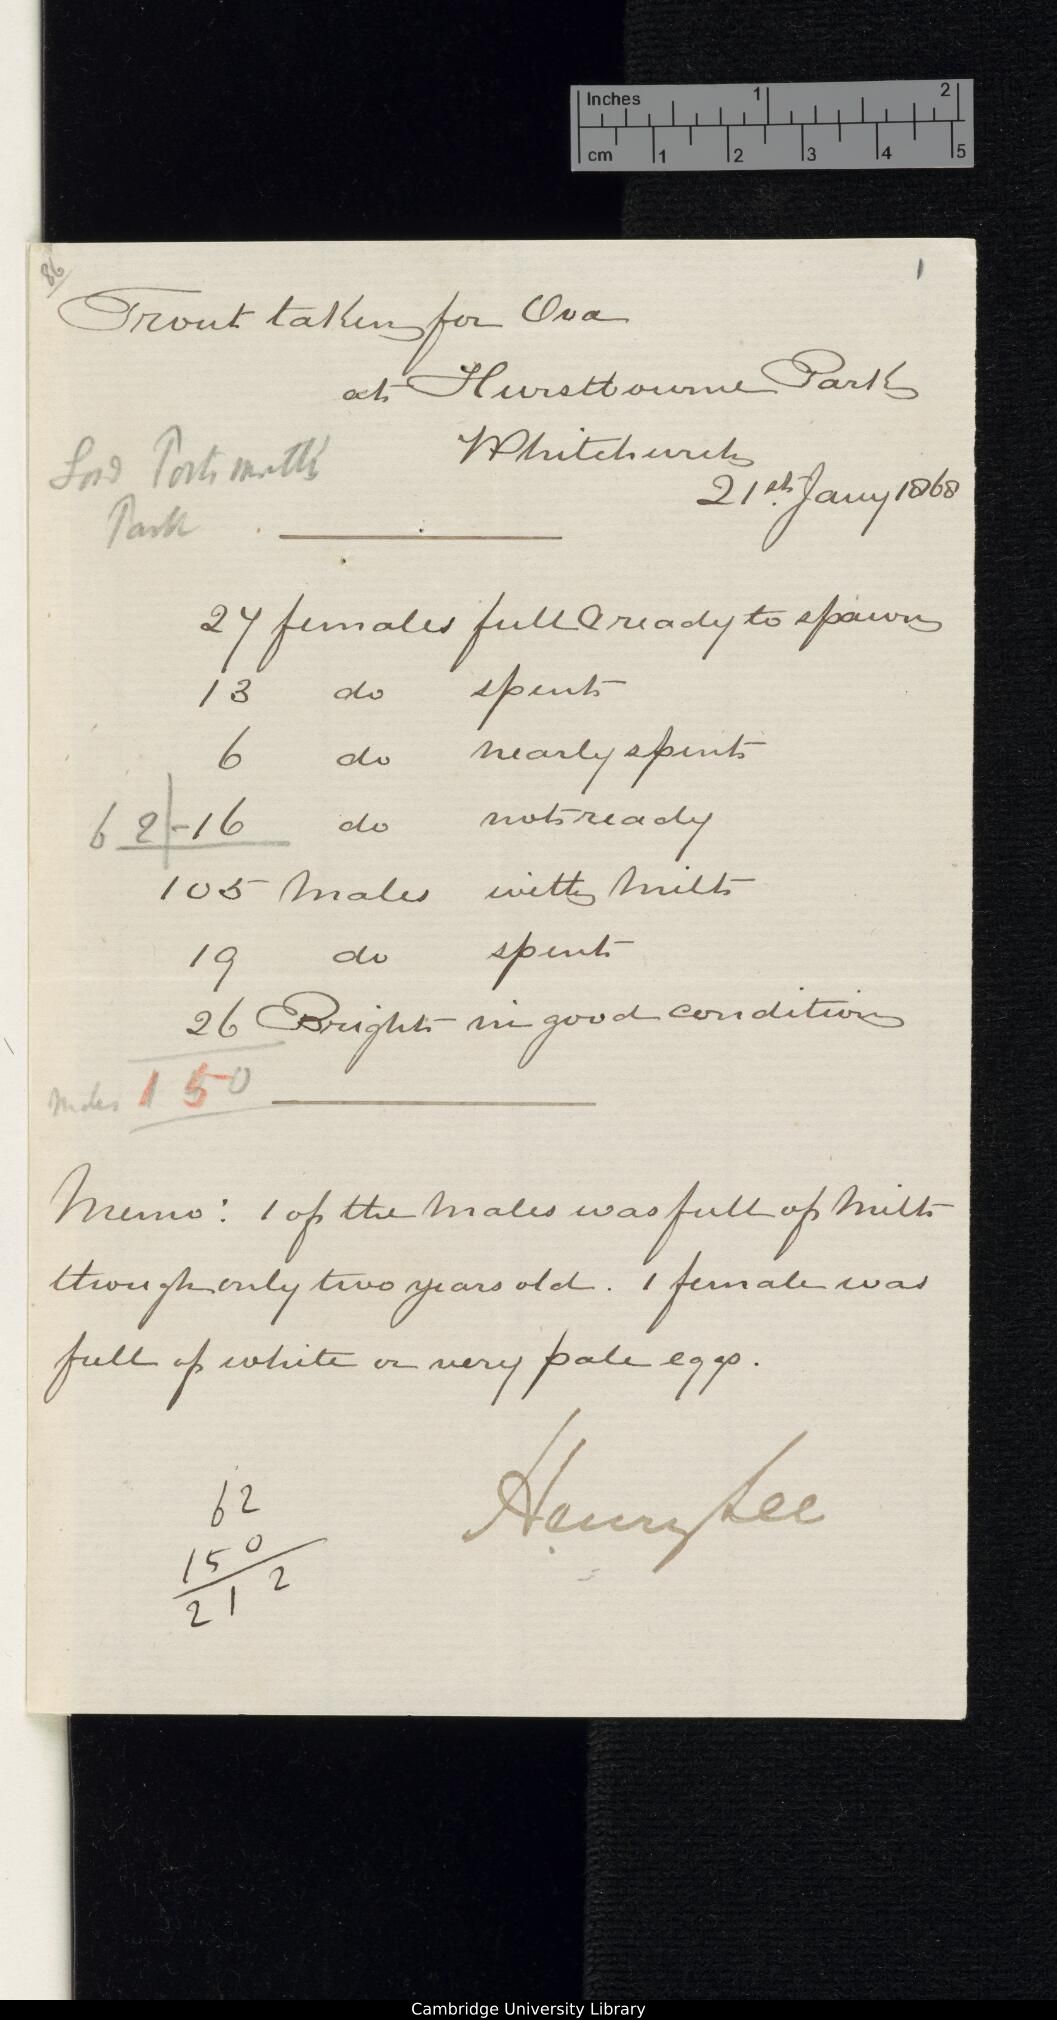 Inches 1 2
cm 1 2 3 4 5
86
1
Trout taken for Ova
at Hurstbourne Park
Whitchurch
21st. Jany 1868
Lord Portsmouths
Park
27 females full & ready to spawn
13 do spent
6 do nearly spent
62 - 16 do not ready
105 Males with Milt
19 do spent
26 Bright in good condition
Males 150
Memo: 1 of the Males was full of Milt
though only two years old. 1 female was
full of white or very pale eggs.
Henry Lee
62
150
212
Cambridge University Library